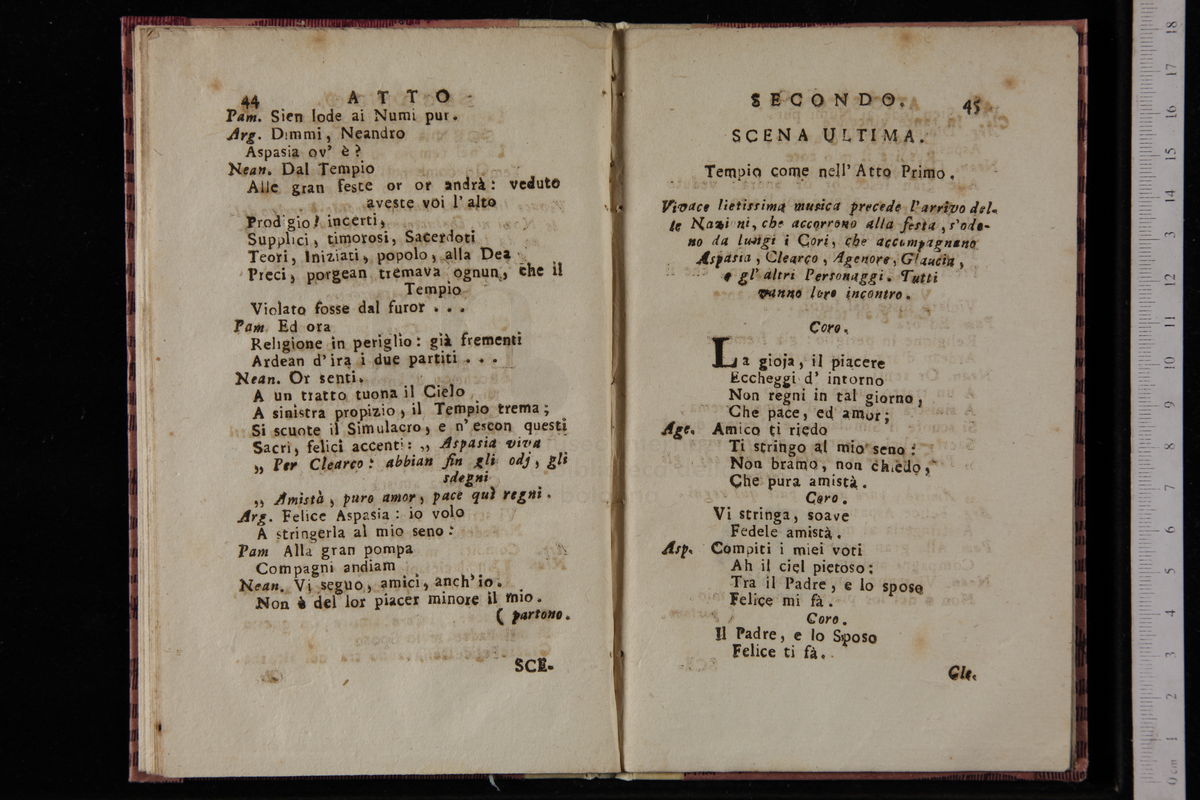 44 ATTO
Pam. Sien lode ai Numi pur.
Arg. Dimmi, Neandro
Aspasia ov' è?
Nean. Dal Tempio
Alle gran feste or or andrà: veduto
aveste voi l'alto
Prodigio! incerti,
Supplici, timorosi, Sacerdoti
Teori, Iniziati, popolo, alla Dea
Preci, porgean tremava ognun, che il
Tempio
Violato fosse dal furor . . .
Pam Ed ora
Religione in periglio: già frementi
Ardean d'ira i due partiti . . .
Nean. Or senti.
A un tratto tuona il Cielo
A sinistra propizio, il Tempio trema;
Si scuote il Simulacro, e n'escon questi
Sacri, felici accenti: „ Aspasia viva
„ Per Clearco: abbian fin gli odj, gli
sdegni
„ Amistà, puro amor, pace quì regni.
Arg. Felice Aspasia: io volo
A stringerla al mio seno:
Pam Alla gran pompa
Compagni andiam
Nean. Vi seguo, amici, anch'io.
Non è del lor piacer minore il mio.
( partono.
SCE-
SECONDO. 45
SCENA ULTIMA.
Tempio come nell' Atto Primo.
Vivace lietissima musica precede l'arrivo del-
le Nazioni, che accorrono alla festa, s'odo-
no da lungi i Cori, che accompagnano
Aspasia, Clearco, Agenore, Glaucia,
e gl' altri Personaggi. Tutti
vanno loro incontro.
Coro.
La gioja, il piacere
Eccheggi d' intorno
Non regni in tal giorno,
Che pace, ed amor;
Age. Amico ti riedo
Ti stringo al mio seno:
Non bramo, non chiedo,
Che pura amistà.
Coro.
Vi stringa, soave
Fedele amistà.
Asp. Compiti i miei voti
Ah il ciel pietoso:
Tra il Padre, e lo sposo
Felice mi fà.
Coro.
Il Padre, e lo Sposo
Felice ti fà.
Cle.